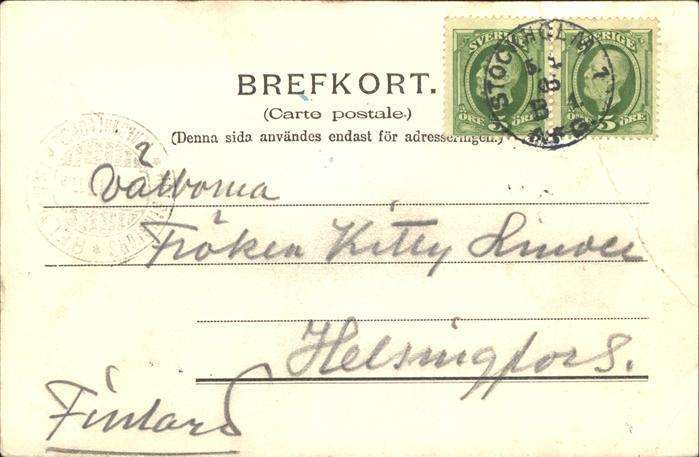 SVERIGE SVERIGE
5 ÖRE 5 ÖRE
STOCKHOLM 1
BREFKORT.
(Carte postale.)
(Denna sida användes endast för adresseringen.)
Välborna
Fröken Kitty
Helsingfors.
Finland